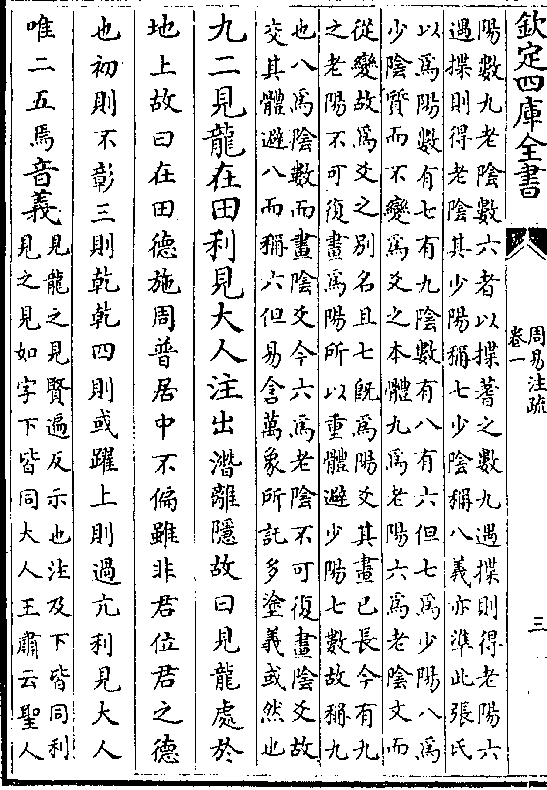 欽定四庫全書
周易注疏
卷一
三
陽數九老陰數六者以揲蓍之數九遇揲則得老陽六
遇揲則得老陰其少陽稱七少陰稱八義亦準此張氏
以為陽數有七有九陰數有八有六但七為少陽八為
少陰質而不變為爻之本體九為老陽六為老陰文而
從變故為爻之別名且七既為陽爻其畫已長今有九
之老陽不可復畫為陽所以重體避少陽七數故稱九
也八為陰數而畫陰爻今六為老陰不可復畫陰爻故
交其體避八而稱六但易含萬象所託多塗義或然也
九二見龍在田利見大人注出潛離隱故曰見龍處於
地上故曰在田德施周普居中不偏雖非君位君之德
也初則不彰三則乾乾四則或躍上則過亢利見大人
唯二五焉音義
見龍之見賢遍反示也注及下皆同利
見之見如字下皆同大人王肅云聖人